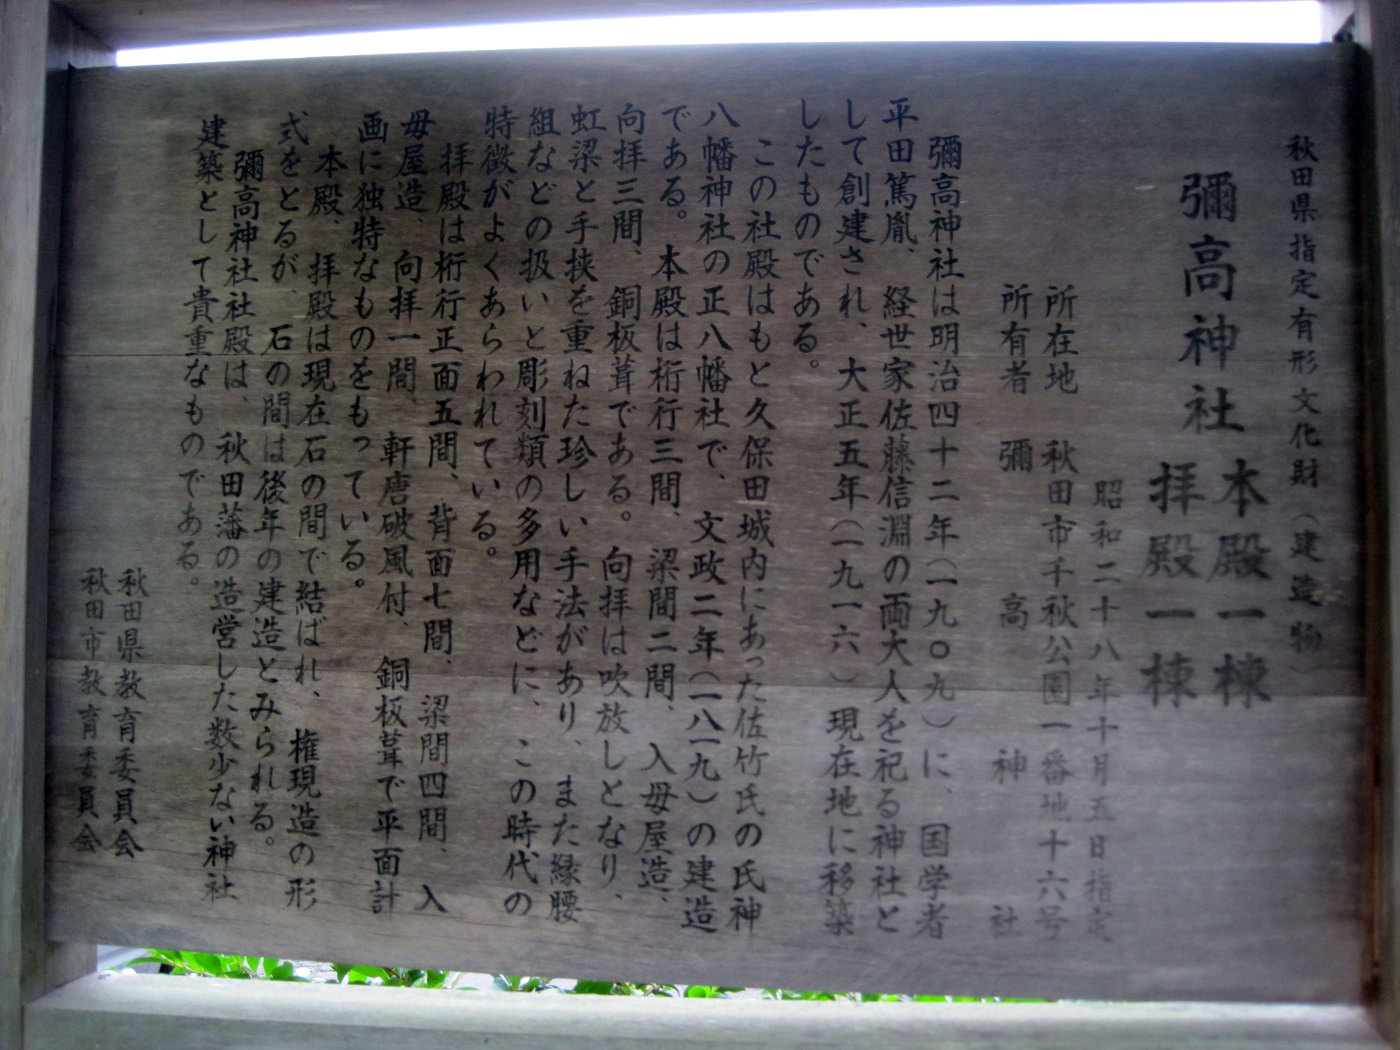 秋田県指定有形文化財（建造物）
彌高神社 本殿一棟
拝殿一棟
昭和二十八年十月五日指定
所在地 秋田市千秋公園一番地十六号
所有者 彌高神社
彌高神社は明治四十二年（一九〇九）に、国学者
平田篤胤、経世家佐藤信淵の両大人を祀る神社と
して創建され、大正五年（一九一六）現在地に移築
したものである。
この社殿はもと久保田城内にあった佐竹氏の氏神
八幡神社の正八幡社で、文政二年（一八一九）の建造
である。本殿は桁行三間、梁間二間、入母屋造、
向拝三間、銅板葺である。向拝は吹放しとなり、
虹梁と手挟を重ねた珍しい手法があり、また縁腰
組などの扱いと彫刻類の多用などに、この時代の
特徴がよくあらわれている。
拝殿は桁行正面五間、背面七間、梁間四間、入
母屋造 向拝一間、軒唐破風付、銅板葺で平面計
画に独特なものをもっている。
本殿、拝殿は現在石の間で結ばれ、権現造の形
式をとるが、石の間は後年の建造とみられる。
彌高神社社殿は、秋田藩の造営した数少ない神社
建築として貴重なものである。
秋田県教育委員会
秋田市教育委員会